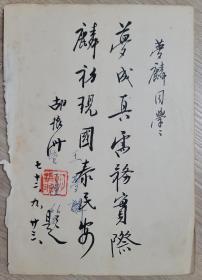 夢麟同學：
夢成真需務實際
麟初現國泰民安
題
七十二、九、廿三、